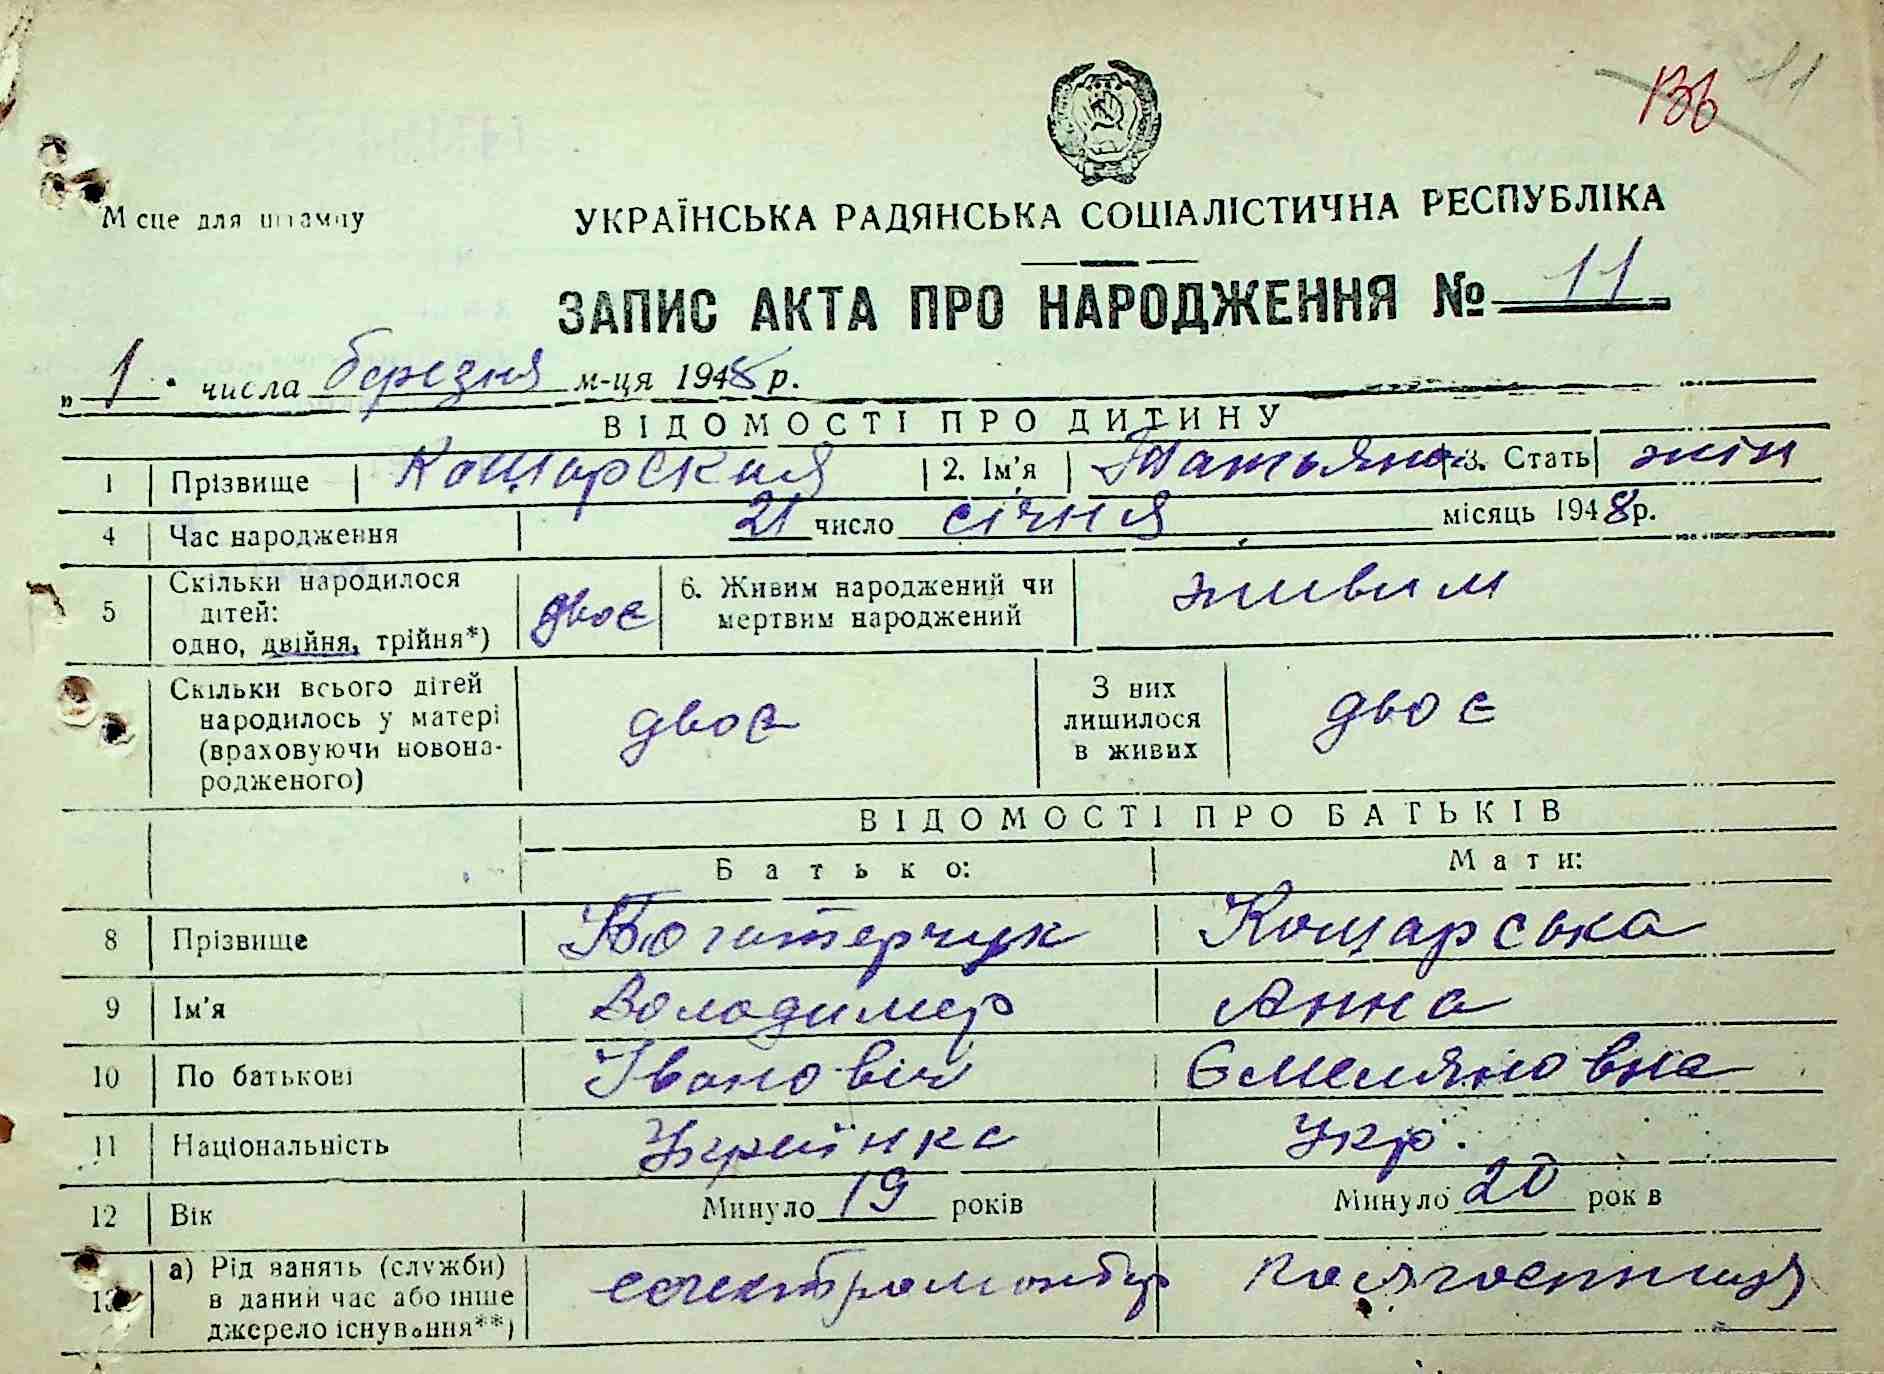 11
Місце для штампу
УКРАЇНСЬКА РАДЯНСЬКА СОЦІАЛІСТИЧНА РЕСПУБЛІКА
ЗАПИС АКТА ПРО НАРОДЖЕННЯ № 11
„1" числа березня м-ця 1948 р.
ВІДОМОСТІ ПРО ДИТИНУ
1 Прізвище Кощарская 2. Ім'я Татьяна 3. Стать жін
4 Час народження 21 число січня місяць 1948 р.
5 Скільки народилося дітей: одно, двійня, трійня*) двоє 6. Живим народжений чи мертвим народжений живим
Скільки всього дітей народилось у матері (враховуючи новонародженого) двоє З них лишилося в живих двоє
ВІДОМОСТІ ПРО БАТЬКІВ
Батько: Мати:
8 Прізвище Богатерчук Кощарська
9 Ім'я Володимер Анна
10 По батькові Івановіч Ємеляновна
11 Національність Укр.
12 Вік Минуло 19 років Минуло 20 років
13 а) Рід занять (служби) в даний час або інше джерело існування**)